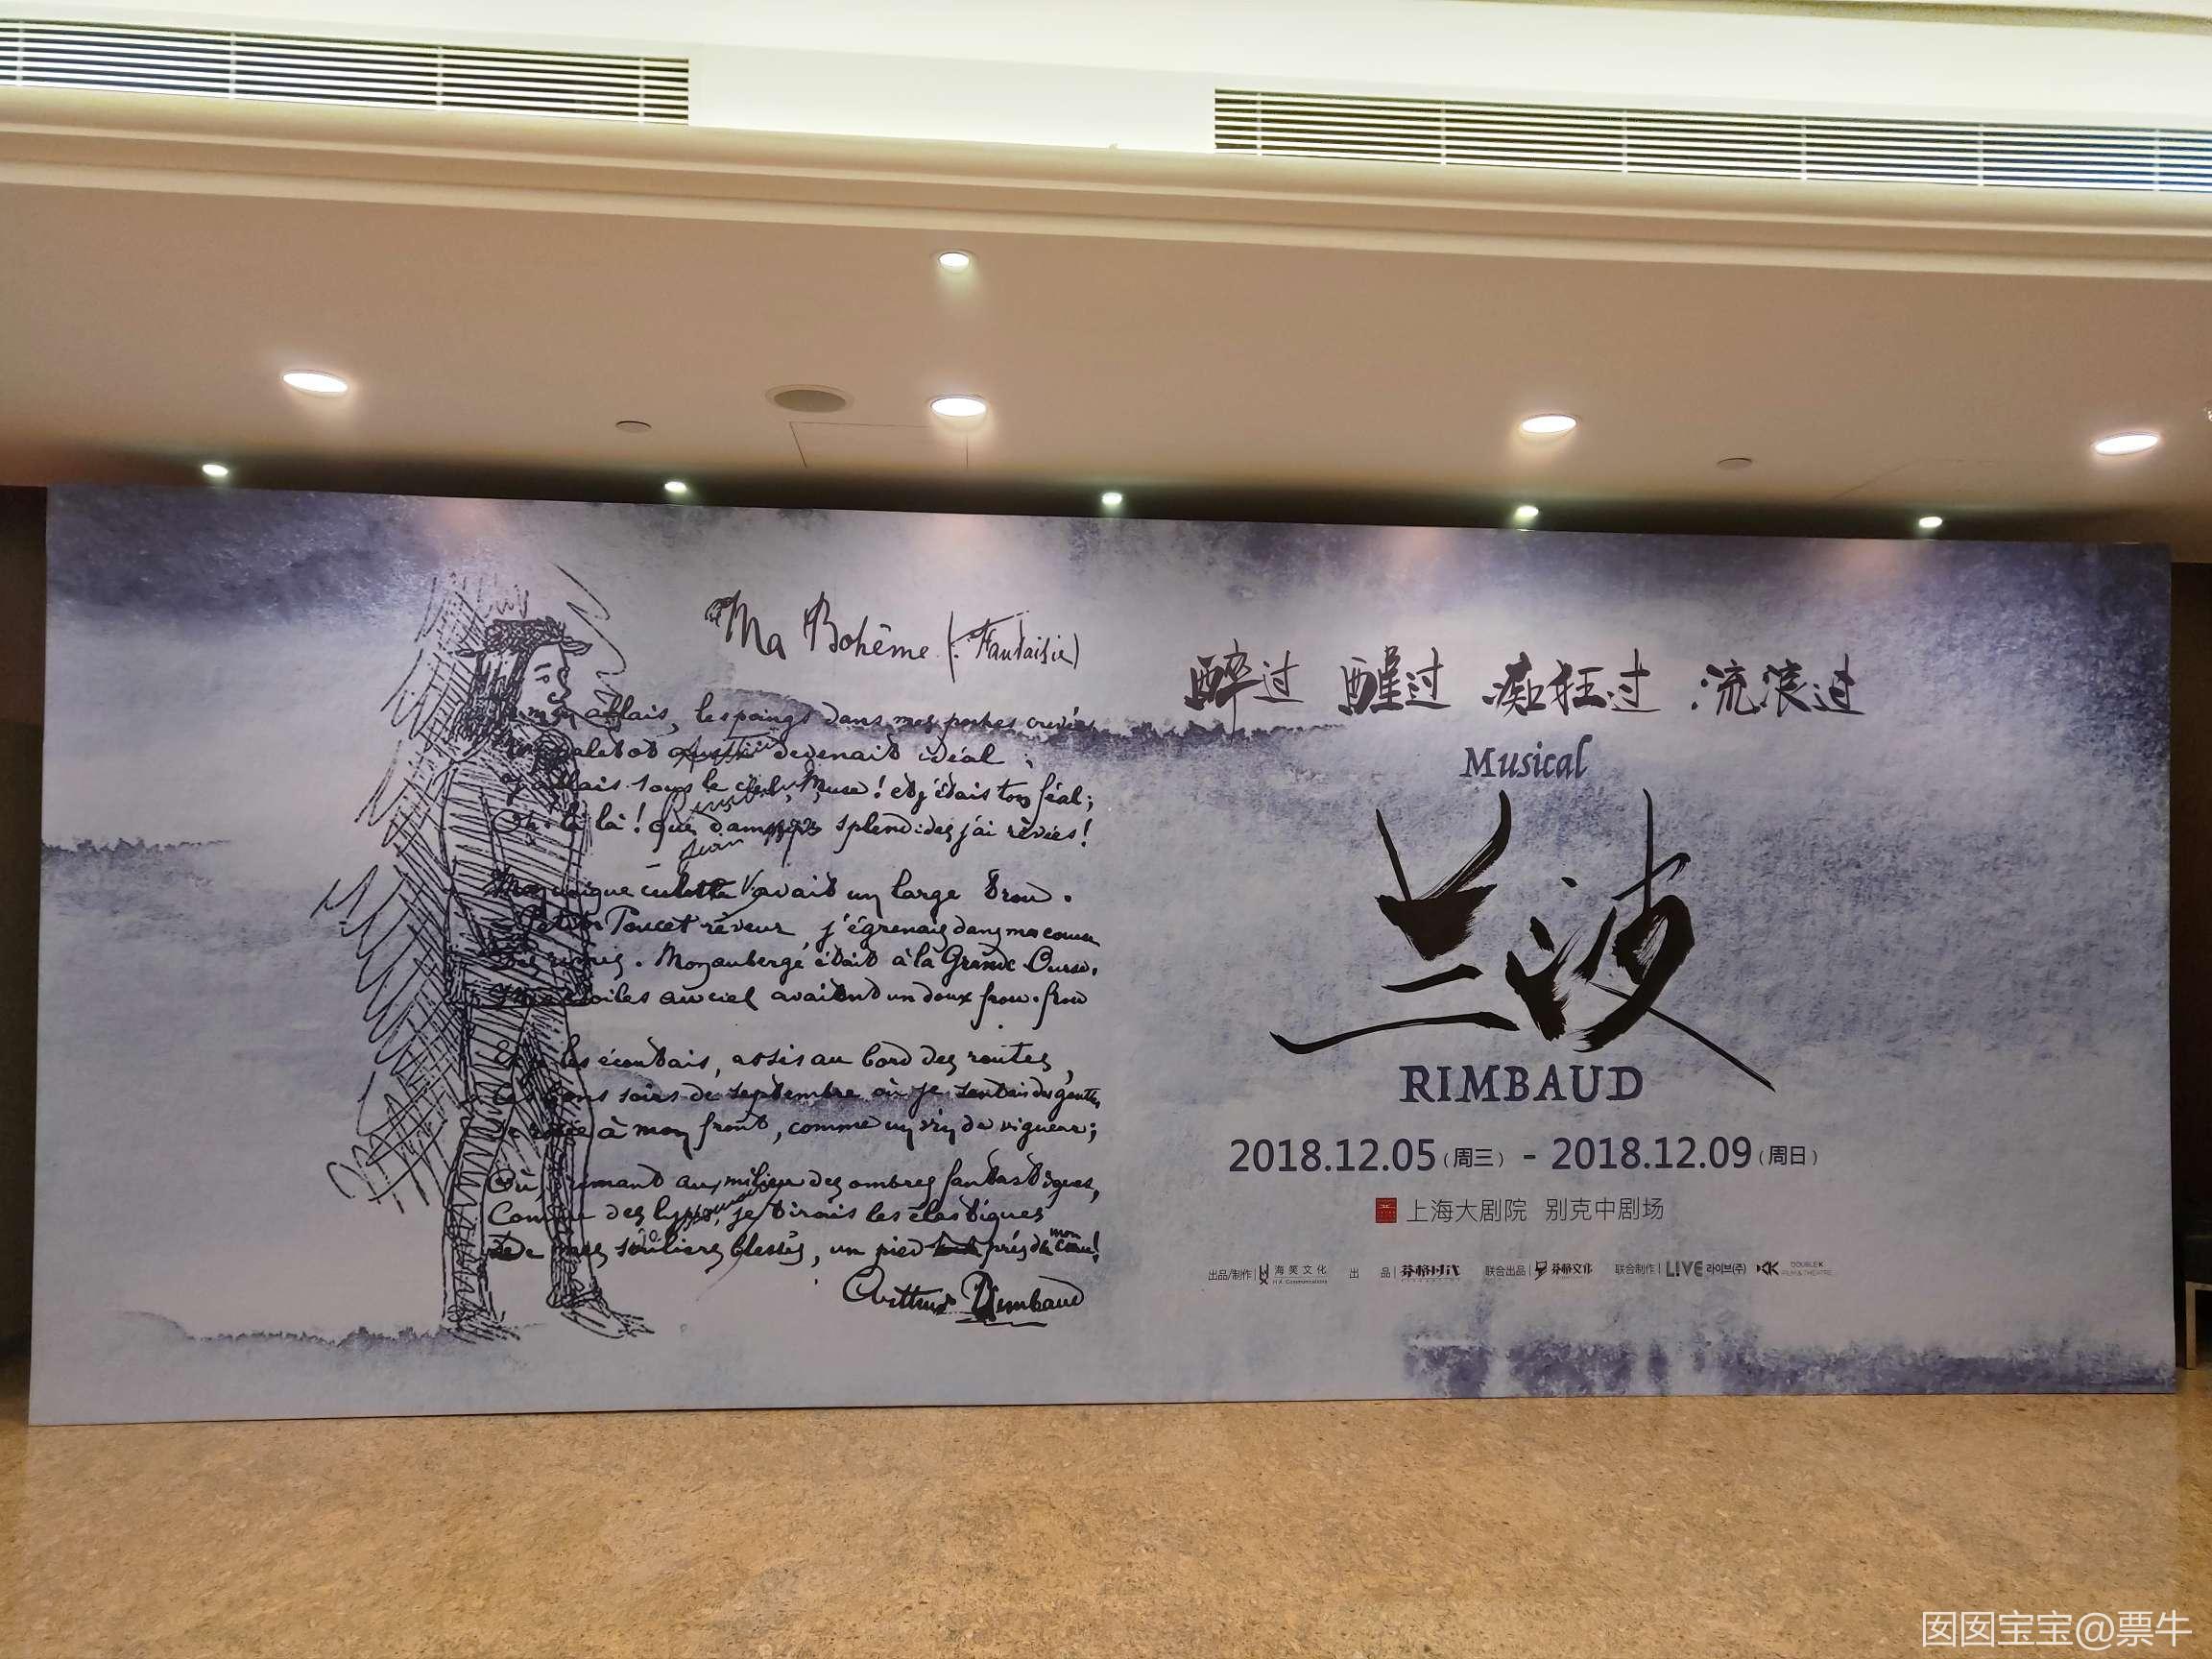 Ma Bohême (Fantaisie)
allais, les poings dans mes poches crevées
paletot aussi devenait idéal;
J'allais sous le ciel, Muse! et j'étais ton féal;
Oh. là là! que d'amours splendides j'ai rêvées!
Mon unique culotte avait un large trou.
Petit Poucet rêveur, j'égrenais dans ma course
Des rimes. Mon auberge était à la Grande Ourse.
Mes étoiles au ciel avaient un doux frou-frou
les écoutais, assis au bord des routes,
Ces bons soirs de septembre où je sentais des gouttes
rosée à mon front, comme un vin de vigueur;
Où, rimant au milieu des ombres fantastiques,
Comme des lyres, je tirais les élastiques
De mes souliers blessés, un pied près de mon cœur!
Arthur Rimbaud
醉过 醒过 痴狂过 流浪过
Musical
兰波
RIMBAUD
2018.12.05(周三) - 2018.12.09(周日)
上海大剧院 别克中剧场
出品/制作 | 海笑文化 出 品 | 芬格时代 联合出品 | 芬格文化 联合制作 | LIVE 라이브(주) DOUBLE K FILM & THEATRE
囡囡宝宝@票牛